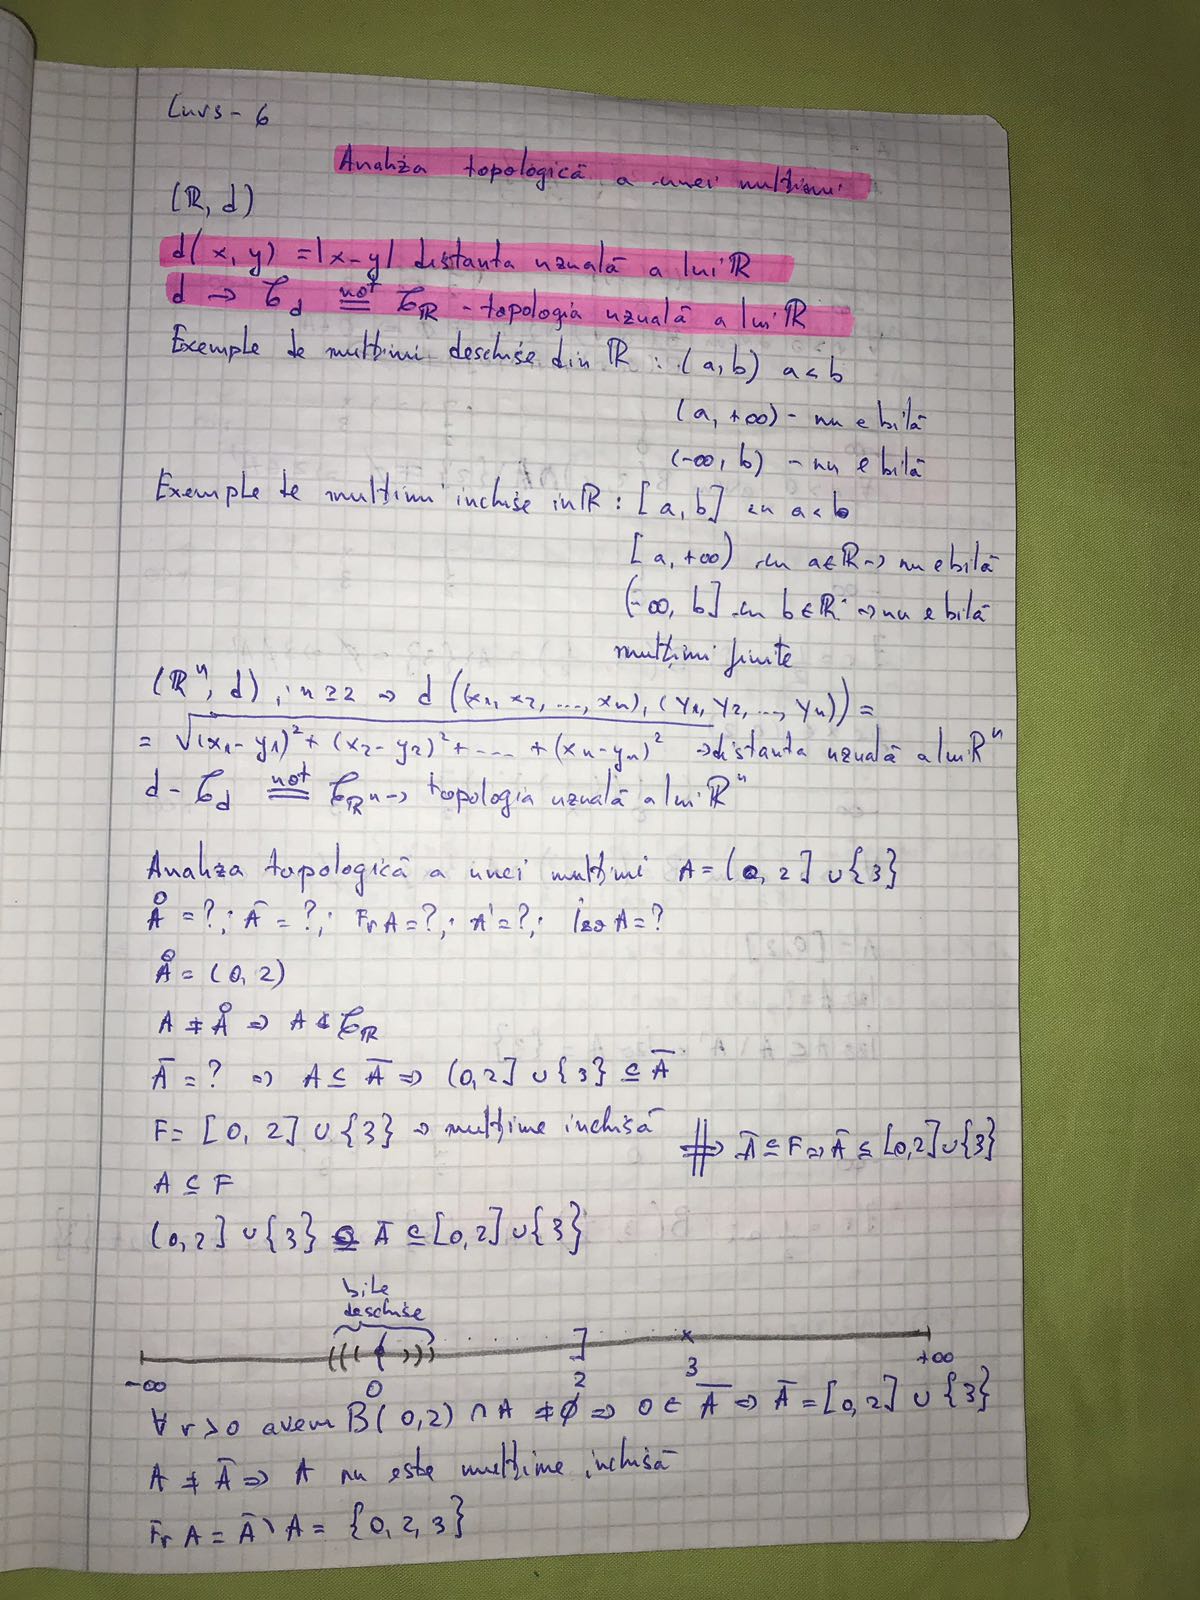 Curs - 6
Analiza topologică a unei mulțimi
(ℝ, d)
d(x, y) = |x-y| distanta uzuală a lui ℝ
d → 𝒯_d ≝not 𝒯_ℝ - topologia uzuală a lui ℝ
Exemple de mulțimi deschise din ℝ : (a, b) a < b
(a, +∞) - nu e bilă
(-∞, b) - nu e bilă
Exemple de mulțimi inchise in ℝ : [a, b] cu a < b
[a, +∞) cu a∈ℝ → nu e bilă
(-∞, b] cu b∈ℝ → nu e bilă
mulțimi finite
(ℝⁿ, d), n ≥ 2 → d((x₁, x₂, ..., xₙ), (y₁, y₂, ..., yₙ)) =
= √((x₁-y₁)² + (x₂-y₂)² + .... + (xₙ-yₙ)²) → distanta uzuală a lui ℝⁿ
d - 𝒯_d ≝not 𝒯_ℝⁿ → topologia uzuală a lui ℝⁿ
Analiza topologică a unei mulțimi A = (0, 2] ∪ {3}
Å = ?; Ā = ?; Fr A = ?; A' = ?; Izo A = ?
Å = (0, 2)
A ≠ Å ⇒ A ∉ 𝒯_ℝ
Ā = ? ⇒ A ⊆ Ā ⇒ (0, 2] ∪ {3} ⊆ Ā
F = [0, 2] ∪ {3} → mulțime inchisă
A ⊆ F
⇒ Ā ⊆ F ⇒ Ā ⊆ [0, 2] ∪ {3}
(0, 2] ∪ {3} ⊆ Ā ⊆ [0, 2] ∪ {3}
bile
deschise
-∞ 0 2 3 +∞
∀ r > 0 avem B(0, 2) ∩ A ≠ ∅ ⇒ 0 ∈ Ā ⇒ Ā = [0, 2] ∪ {3}
A ≠ Ā ⇒ A nu este mulțime inchisă
Fr A = Ā \ A = {0, 2, 3}